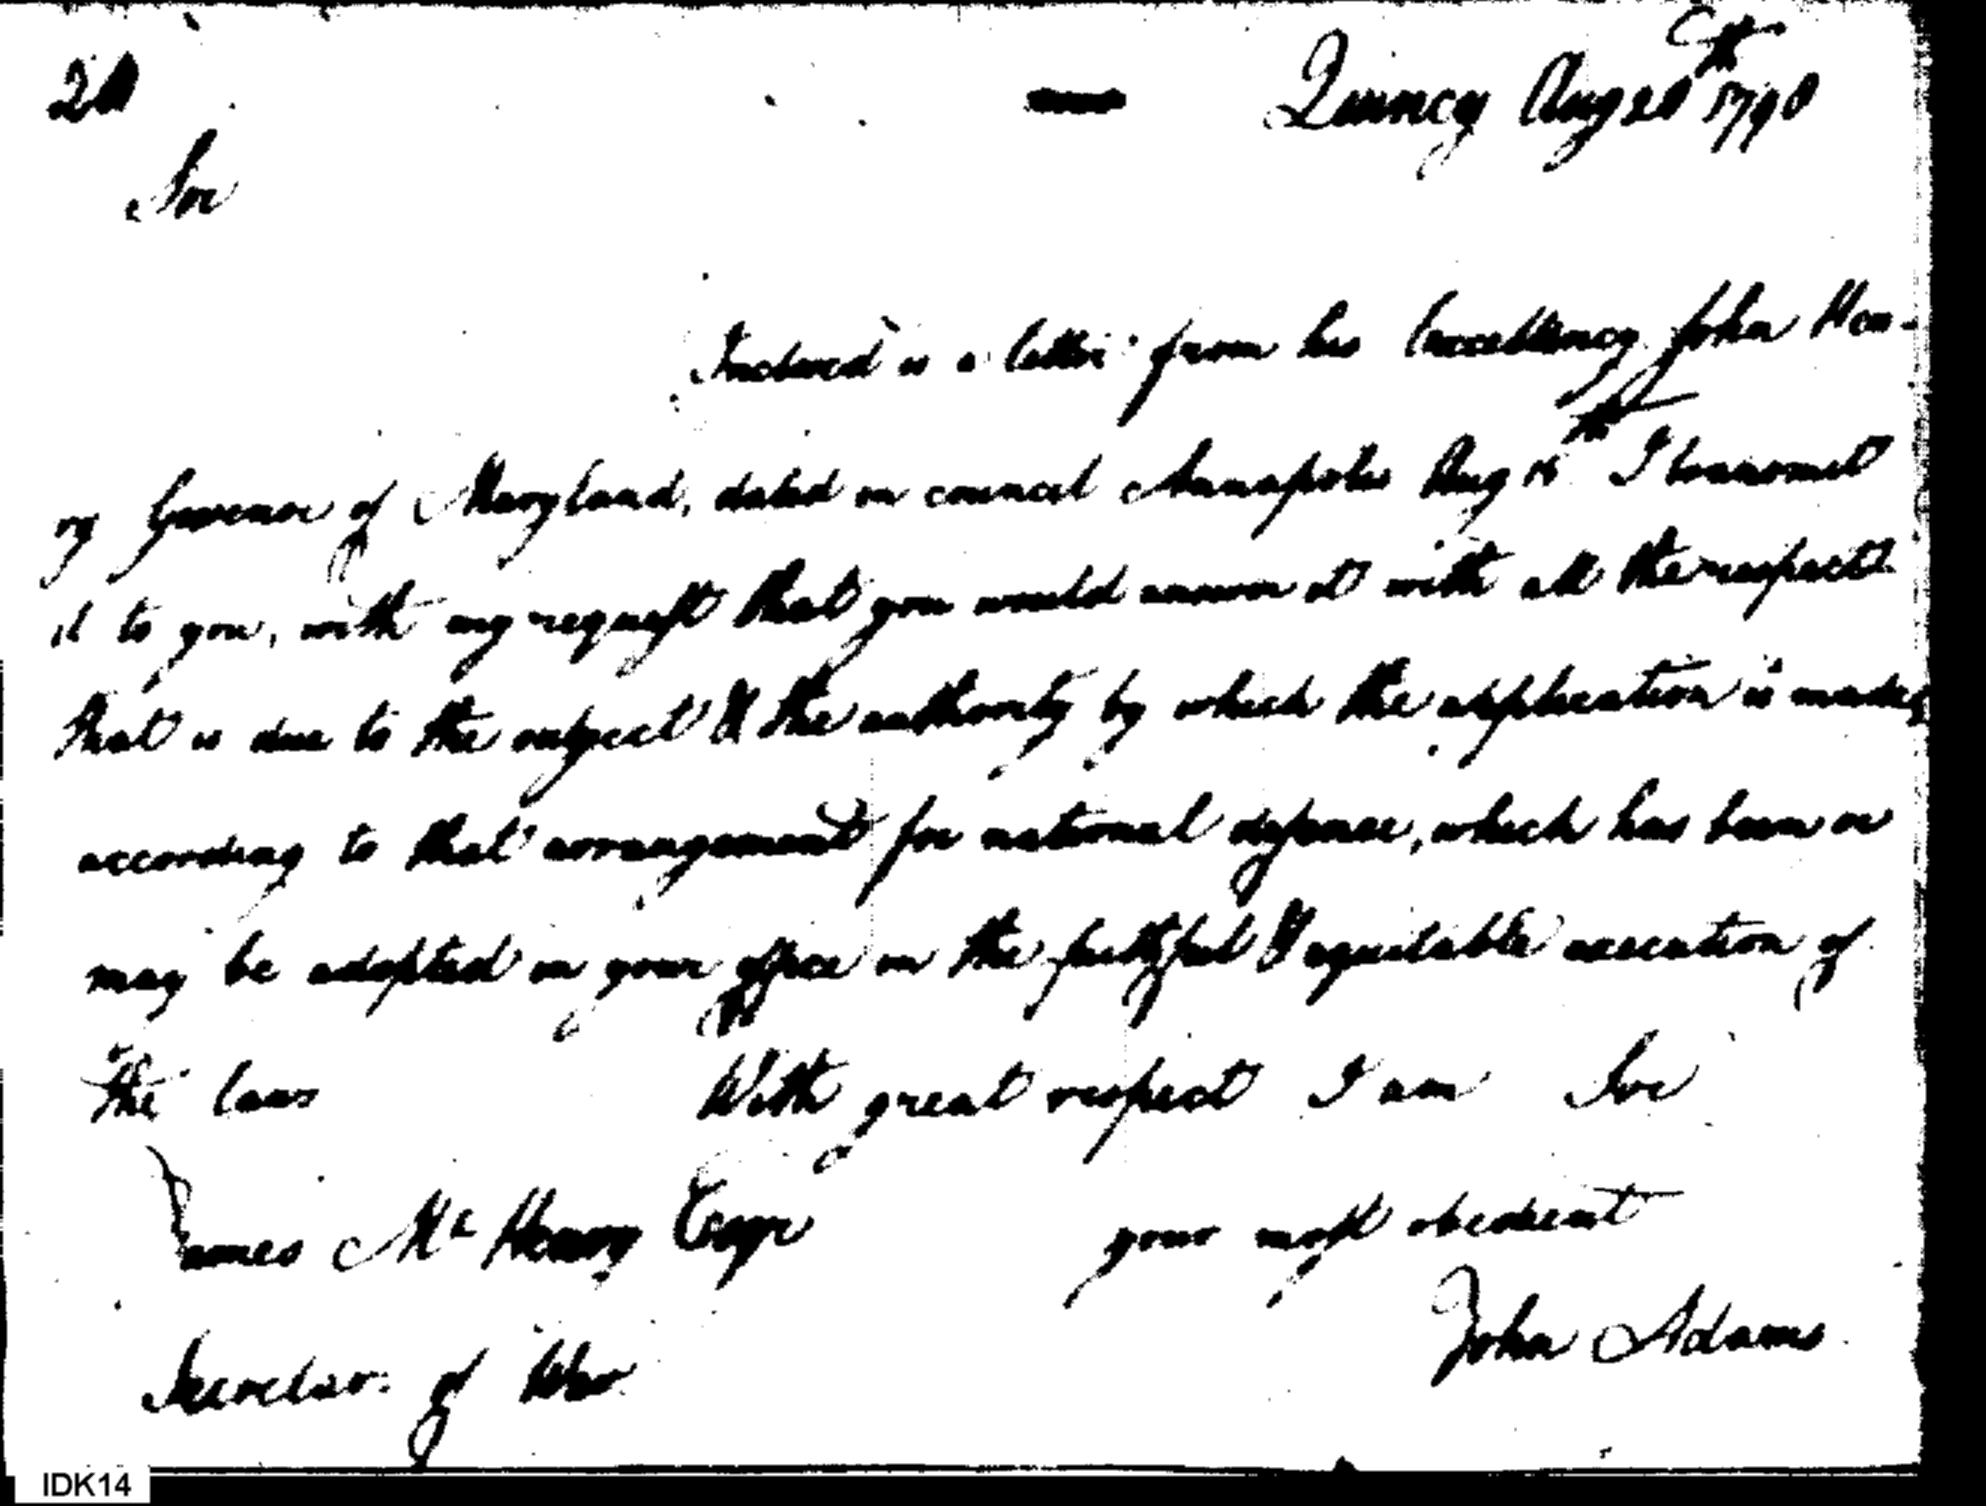 Quincy Aug 28th 1798
Sir
Inclosed is a letter from his Excellency John Hen-
ry Govenor of Maryland, dated in council Annapolis Aug 16th I transmit
it to you, with my request that you would answer it with all the respect
that is due to the subject & the authority by which the application is made,
according to that arrangement for national defence, which has been or
may be adopted in your office in the faithful & equitable execution of
the laws With great respect I am Sir
James Mc Henry Esqr your most obedient
Secretary of War John Adams
IDK14